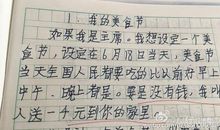 1、我的美食节
如果我是主席。我想设定一个美
食节,设定在6月18日当天,美食节
当天全国人民都要吃的比以前好早上
中午、晚上都是。要是没有钱,我叫
人送一千元到你的家里